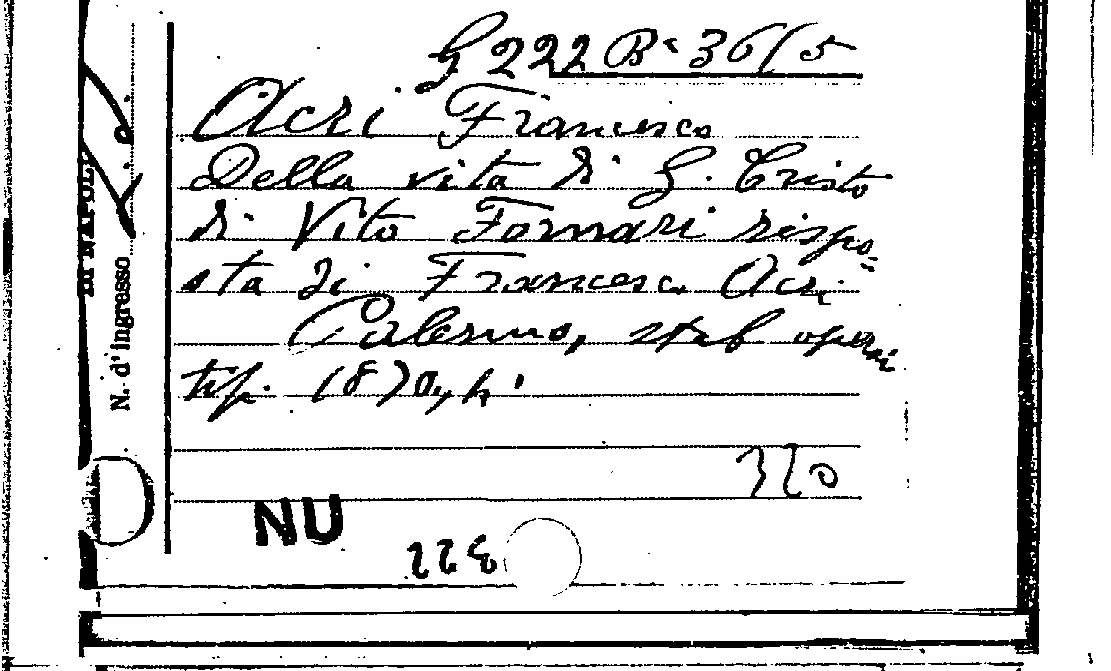 G 222 B. 36/5
Acri Francesco
Della vita di G. Cristo
di Vito Fornari rispo-
sta di Francesco Acri
Palermo, stab operai
tip. 1870,
NU
DI NAPOLI
N. d'ingresso